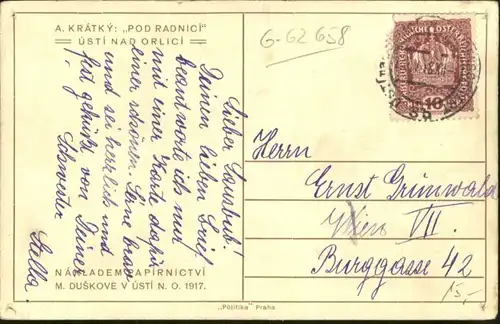 A. KRÁTKÝ: „POD RADNICÍ"
ÚSTÍ NAD ORLICÍ
G-62 658
Lieber Lausbub!
Deinen lieben Brief
beantworte ich nur
mit einer Karte dafür
einer schönen. Sei brav
und sei herzlich und
fest geküsst von Deiner
Schwester
Stella.
10
Herrn
Ernst Grünwald
Wien VII.
Burggasse 42
15,-
NÁKLADEM PAPÍRNICTVÍ
M. DUŠKOVÉ V ÚSTÍ N. O. 1917.
„Politika" Praha